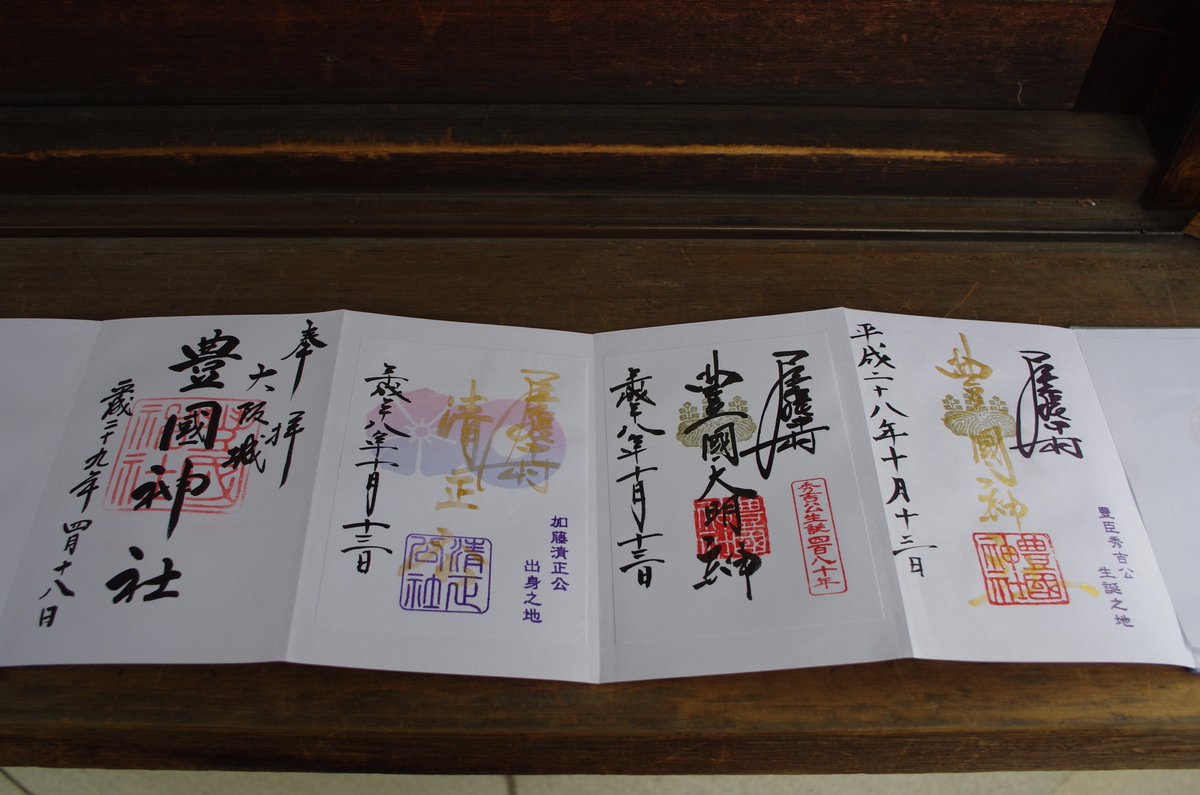 豐臣秀吉公
生誕之地
豊國神社
豊國神社
平成二十八年十月十三日
秀吉公生誕四百八十年
豊國大明神
平成廿八年十月十三日
加藤清正公
出身之地
清正公
清正公社
平成廿八年十月十三日
奉拝
大阪城
豊國神社
豊國神社
平成二十九年四月十八日